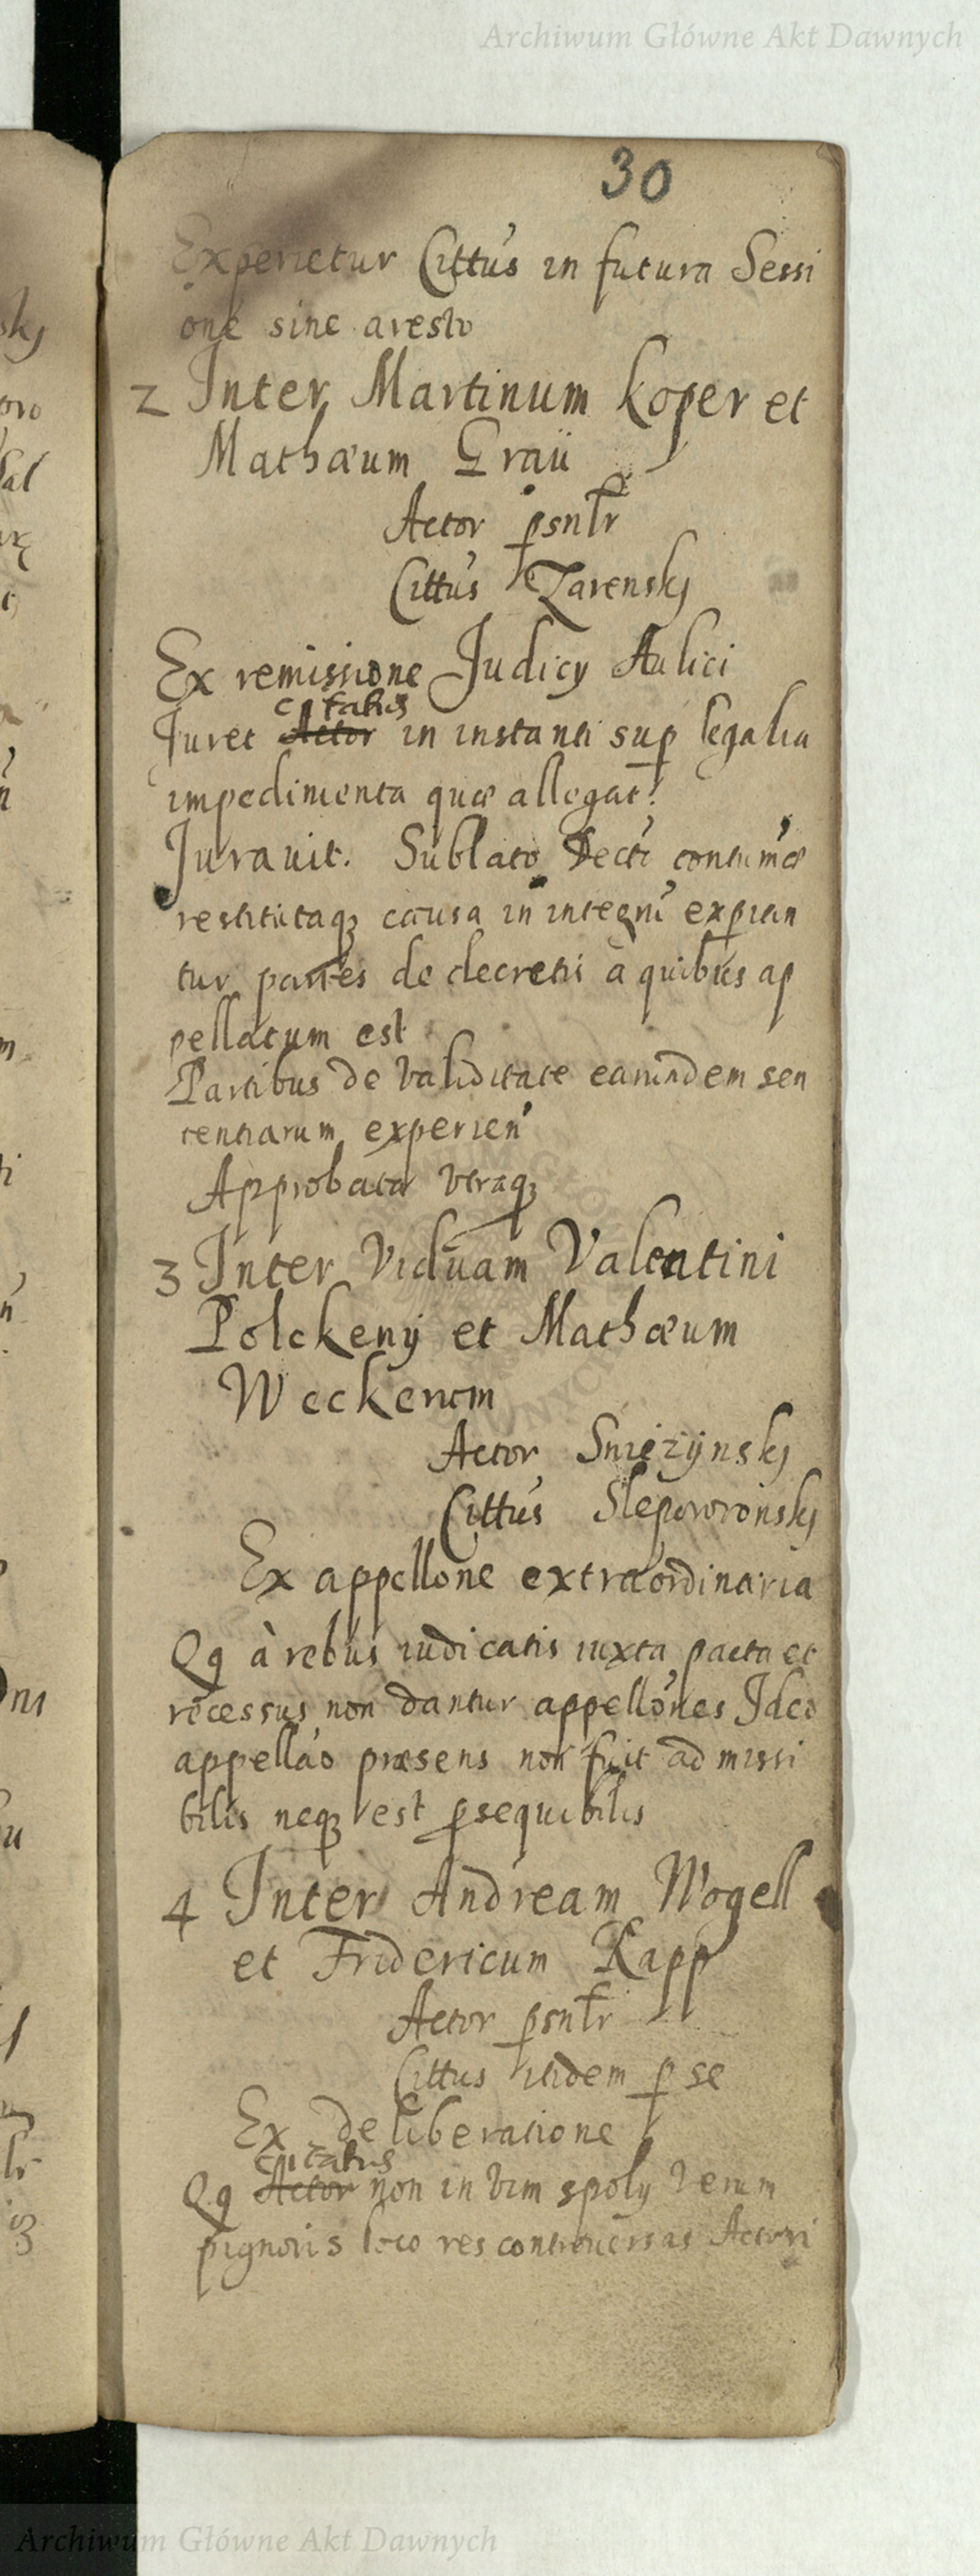 Archiwum Główne Akt Dawnych
30
Experietur Cittus in futura Sessi
one sine aresto
2 Inter Martinum Koper et
Mathæum Graü
Actor psntr
Cittus Zarensky
Ex remissione Judicy Aulici
citatus
Juret Actor in instanti sup legalia
impedimenta quæ allegat.
Jurauit. Sublato Decti contumæ
restitutaq causa in integru experian
tur partes de decretis à quibus ap
pellatum est
Partibus de validitate earundem sen
tentiarum experien
Approbata vtraq
3 Inter Viduam Valentini
Polckeny et Mathæum
Weckerum
Actor Sniezÿnsky
Cittus Slepororonsky
Ex appellone extraordinaria
Qq à rebus iudicatis iuxta pacta et
recessus non dantur appellones Ideo
appellao præsens non fuit admissi
bilis neq est psequibilis
4 Inter Andream Wogell
et Fridericum Rapp
Actor psntr
Cittus itidem p se
Ex deliberatione
citatus
Qq Actor non in vim spoly verum
pignoris loco res controuersas Actori
Archiwum Główne Akt Dawnych